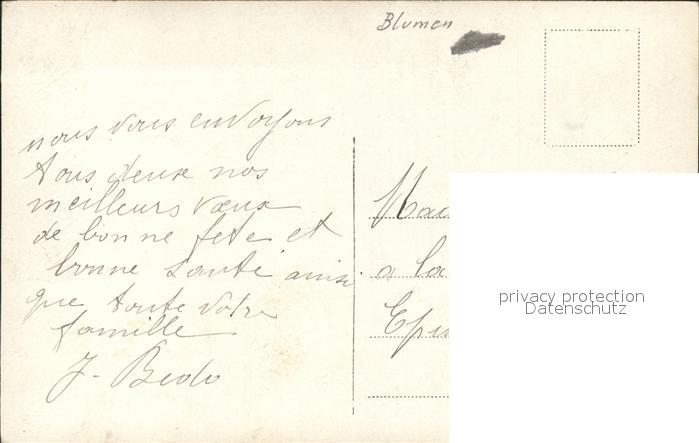 Blumen
nous vous envoyons
tous deux nos
meilleurs vœux
de bonne fete et
bonne santé ainsi
que toute votre
famille
J. Bedo
a la
privacy protection
Datenschutz